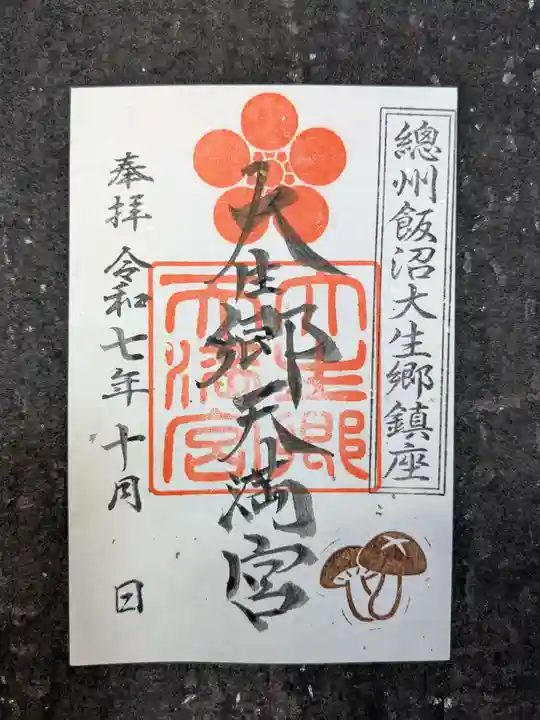 總州飯沼大生郷鎮座
大生郷天満宮
大生郷
天満宮
奉拝 令和七年 十月 日